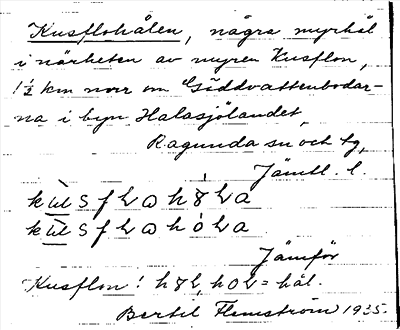 Kusflohålen, några myrhål
i närheten av myren Kusflon,
1½ km norr om Göddvattenbodar-
na i byn Halasjölandet,
Ragunda sn och tg,
Jämtl. l.
Jämför
Kusflon! = hål.
Bertil Flemström 1935.